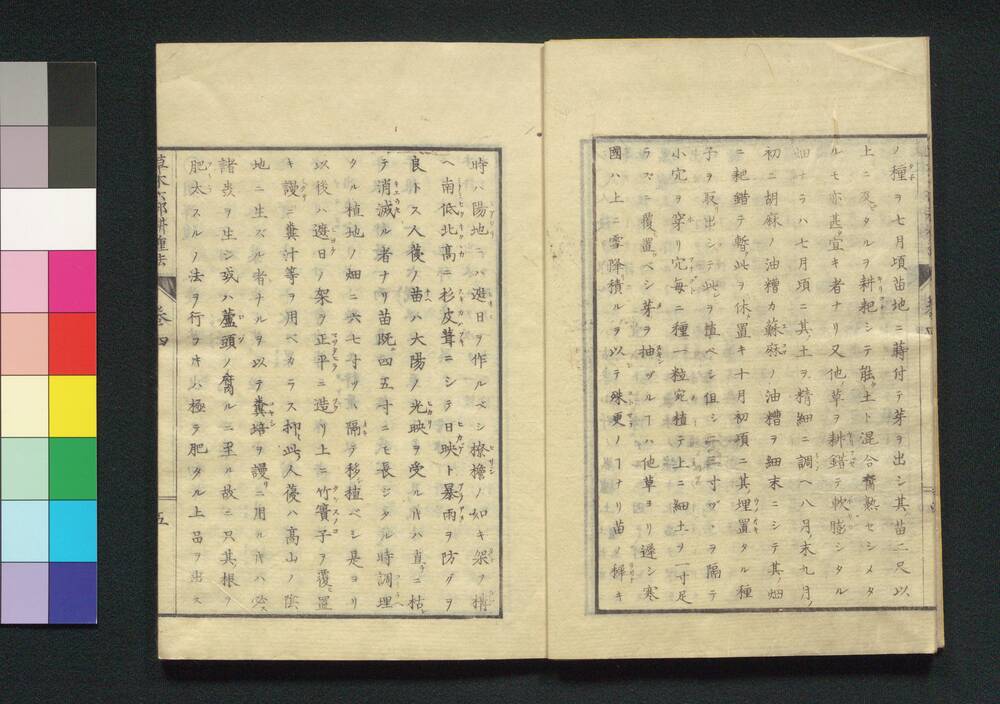 ノ種ヲ七月頃苗地ニ蒔付テ芽ヲ出シ其苗二尺以
上ニタルヲ耕耙シテ能土ト混合セシメタ
ルモ亦甚宜キ者ナリ又他ノ草ヲ耕錯テ軟膨シタル
畑ナラハ七月頃ニ其土ヲ精細ニ調ヘ八月末九月ノ
初ニ胡麻ノ油糟カ蘇麻ノ油糟ヲ細末ニシテ其畑
ニ耙錯テ暫此ヲ休置キ十月初項ニ其埋置タル種
子ヲ取出シテ此ヲ植ベシ但シ二三寸ヅヽヲ隔テ
小穴ヲ穿リ穴毎ニ種一粒宛植テ上ニ細土ヲ一寸足
ラズニ覆置ベシ芽ヲ抽ヅルヿハ他草ヨリ遲シ寒
國ハ上ニ雪降積ルヲ以テ殊更ノヿナリ苗ノ穉キ
時ハ陽地ニハ遮日ヲ作ルベシ撩檐ノ如キ架ヲ構
ヘ南低北高ニ杉皮葺ニシテ日映ト暴雨ヲ防グヲ
良トス人葠ノ苗ハ大陽ノ光映ヲ受ルキハ直ニ枯
テ消滅ル者ナリ苗既四五寸ニモ長ジタル時調理
タル植地ノ畑ニ六七寸ツヽ隔テ移植ベシ是ヨリ
以後ハ遮日ノ架ヲ正平ニ造リ上ニ竹簀子ヲ覆置
キ謾ニ糞汁等ヲ用ベカラス抑此人葠ハ高山ノ陰
地ニ生ズル者ナルヲ以テ糞培ヲ謾ニ用ルキハ必
諸虫ヲ生シ或ハ蘆頭ノ腐ルニ至ル故ニ只其根ヲ
肥太スルノ法ヲ行ヲキハ極テ肥タル上品ヲ出ス
草木六部耕種法
卷四
五